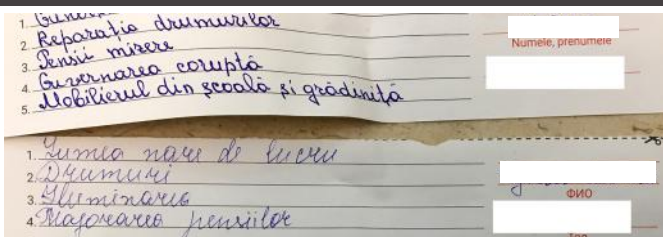 1.
2. Reparația drumurilor
3. Pensii mizere
4. Guvernarea coruptă
5. Mobilierul din școală și grădiniță
Numele, prenumele
1. Lumea nare de lucru
2. Drumuri
3. Iluminarea
4. Majorarea pensiilor
ФИО